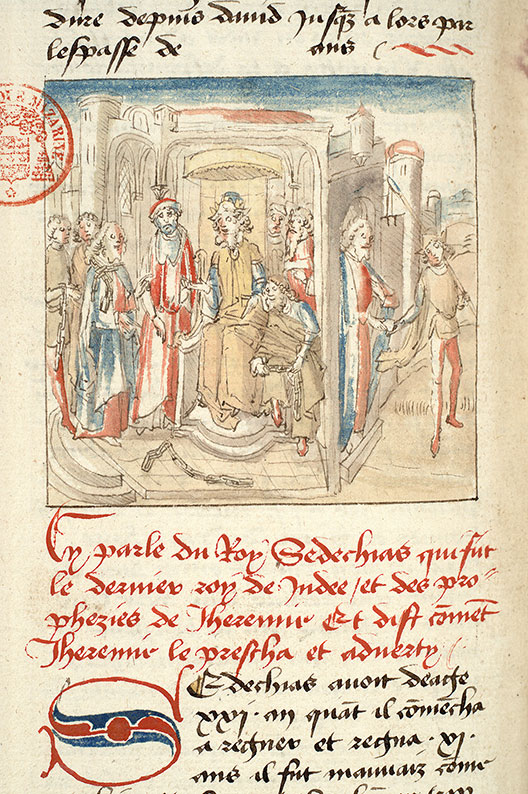 dure depuis david Jusq̃ a lors par
lespasse de ans
Cy parle du Roy Sedechias qui fut
le dernier roy de Judee / et des pro-
phezies de Jheremie Et dist cõmẽt
Jheremie le prescha et adverty
SEdechias avoit deage
xxj. an quãt il cõmẽcha
a regner et regna .xj.
ans il fut mauvaiz cõme